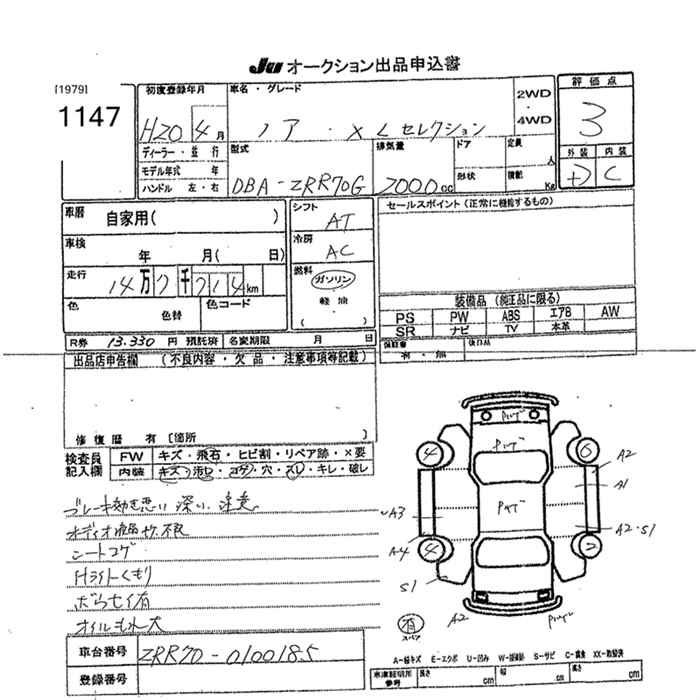 JU オークション出品申込書
[1979]
1147
初度登録年月
H20 4月
ディーラー・並行
モデル年式 年
ハンドル 左・右
車名・グレード
ノア・XLセレクション
2WD
・
4WD
評価点
3
型式
DBA-ZRR70G
排気量
2000cc
ドア
形状
定員
人
積載
Kg
外装 内装
+D C
車歴
自家用( )
車検
年 月( 日)
走行
14万7千714km
色
色替
色コード
シフト
AT
冷房
AC
燃料
ガソリン
軽油
( )
セールスポイント(正常に機能するもの)
装備品(純正品に限る)
PS PW ABS エアB AW
SR ナビ TV 本革
保証書
有・無
後日品
R券 13.330 円 預託済
名変期限 月 日
出品店申告欄 (不良内容・欠品・注意事項等記載)
修復歴 有[箇所
検査員
記入欄
FW キズ・飛石・ヒビ割・リペア跡・×要
内装 キズ・汚れ・コゲ・穴・スレ・キレ・破レ
ブレーキ効き悪い 深い 注意
オーディオ液晶ヤケ不良
シートコゲ
Hライトくもり
オイルもれ大
車台番号 ZRR70-0100185
登録番号
4
6
A2
A1
A3
A4
4
2
A2・S1
S1
A2
有
スペア
A-線キズ E-エクボ U-凹み W-補修跡 S-サビ C-腐食 XX-取替済
車庫証明用
参考
長さ cm
幅 cm
高さ cm